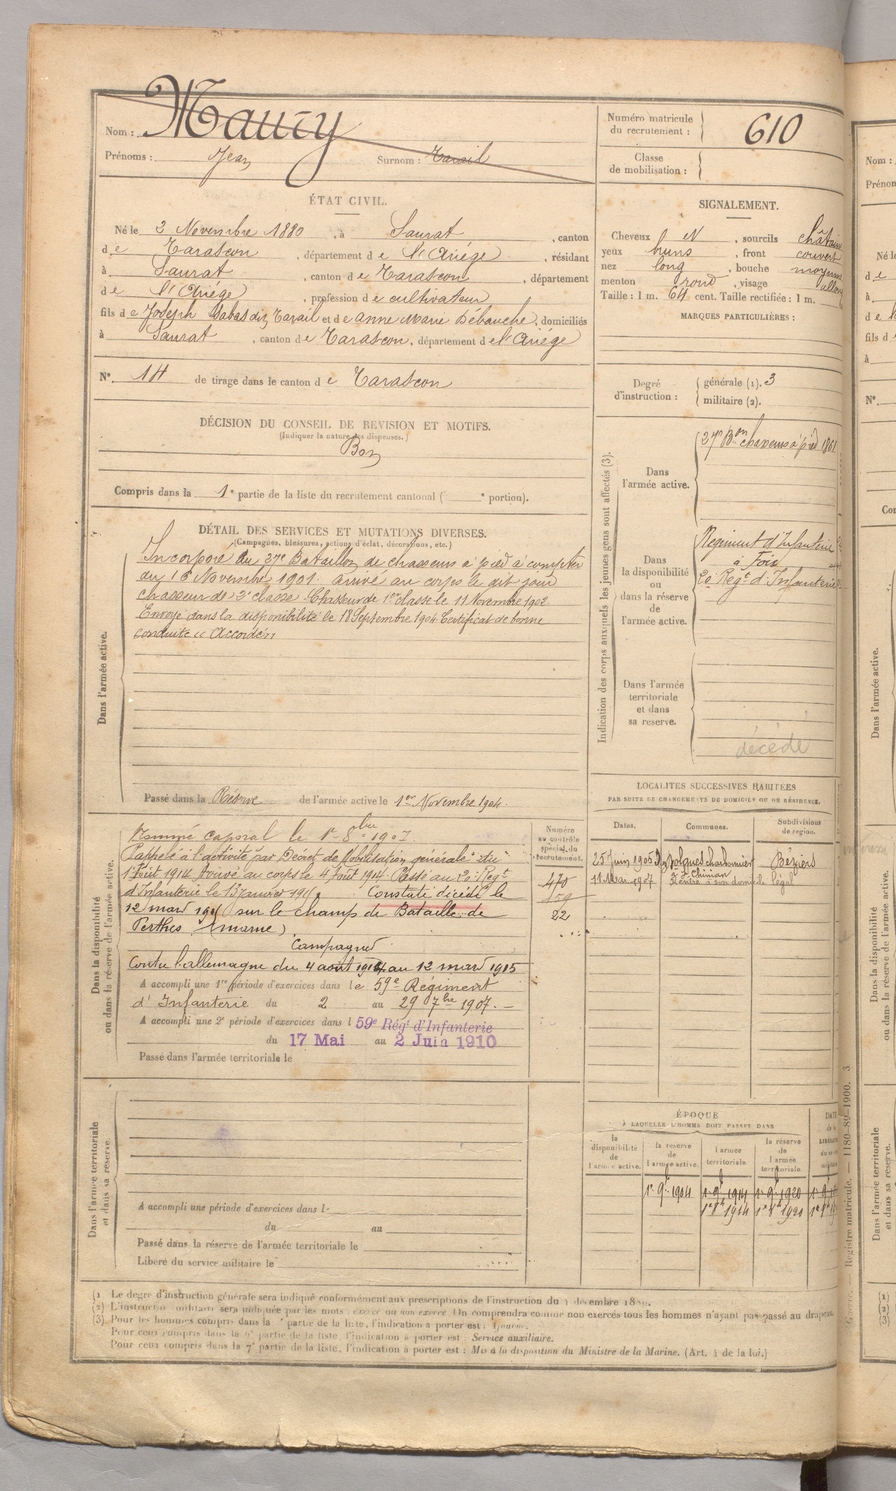 Nom : Maury
Prénoms : Jean Surnom : Tarail
Numéro matricule du recrutement : 610
Classe de mobilisation :
ÉTAT CIVIL.
Né le 2 Novembre 1880, à Saurat, canton
de Tarascon, département de l'Ariège, résidant
à Saurat, canton de Tarascon, département
de l'Ariège, profession de cultivateur
fils de Joseph Tarail et de Anne Marie Débauche, domiciliés
à Saurat, canton de Tarascon, département de l'Ariège
N° 14 de tirage dans le canton de Tarascon
DÉCISION DU CONSEIL DE REVISION ET MOTIFS.
(Indiquer la nature des dispenses.)
Bon
Compris dans la 1e partie de la liste du recrutement cantonal ( e portion).
SIGNALEMENT.
Cheveux N, sourcils châtain
yeux bruns, front couvert
nez long, bouche moyenne
menton rond, visage
Taille : 1 m. 64 cent. Taille rectifiée : 1 m.
MARQUES PARTICULIÈRES :
Degré d'instruction : générale (1). 3
militaire (2).
DÉTAIL DES SERVICES ET MUTATIONS DIVERSES.
(Campagnes, blessures, actions d'éclat, décorations, etc.)
Dans l'armée active.
Incorporé au 27e Bataillon de chasseurs à pied à compter
du 16 Novembre 1901 arrivé au corps le dit jour
chasseur de 2e classe. Chasseur de 1ère classe le 11 Novembre 1902
Envoyé dans la disponibilité le 18 Septembre 1904 Certificat de bonne
conduite "Accordé"
Passé dans la Réserve de l'armée active le 1er Novembre 1904.
Indication des corps auxquels les jeunes gens sont affectés (3).
Dans l'armée active.
27e Bon chasseurs à pied 1901
Dans la disponibilité ou dans la réserve de l'armée active.
Régiment d'Infanterie
à Foix
2e Régt d'Infanterie
Dans l'armée territoriale et dans sa reserve.
décédé
Dans la disponibilité ou dans la réserve de l'armée active.
Nommé caporal le 1er 8bre 1907
Rappelé à l'activité par Décret de Mobilisation générale du
1 Août 1914. Arrivé au corps le 4 Août 1914. Passé au 2e Régt
d'Infanterie le 13 janvier Constaté décédé le
12 mars sur le champ de Bataille de
Perthes (marne)
Campagnes
Contre l'allemagne du 4 août 1914 au 12 mars 1915
A accompli une 1re période d'exercices dans le 59e Régiment
d'Infanterie du 2 au 29 7bre 1907.
A accompli une 2e période d'exercices dans l 59e Rég' d'Infanterie
du 17 Mai au 2 Juin 1910
Passé dans l'armée territoriale le
Numéro au contrôle spécial du recrutement.
470
22
LOCALITES SUCCESSIVES HABITÉES
PAR SUITE DE CHANGEMENTS DE DOMICILE OU DE RÉSIDENCE.
Dates. Communes. Subdivisions de region.
25 Juin 1905 Béziers
à St Chinian
11 Mai 1907 Rentré à son domicile légal
Dans l'armée territoriale et dans sa réserve.
A accompli une période d'exercices dans l
du au
Passé dans la réserve de l'armée territoriale le
Libéré du service militaire le
ÉPOQUE
À LAQUELLE L'HOMME DOIT PASSER DANS
la disponibilité de l'armée active.
la reserve de l'armée active.
l'armée territoriale.
la réserve de l'armée territoriale.
1er 9bre 1904 1er 9bre 1914 1er 9bre 1920
(1) Le degré d'instruction générale sera indiqué conformément aux prescriptions de l'instruction du
(2) L'instruction militaire sera indiquée par les mots : exercé ou non exercé. On comprendra comme non exercés tous les hommes n'ayant pas passé au drapeau.
(3) Pour les hommes compris dans la partie de la liste, l'indication à porter est :
Pour ceux compris dans la partie de la liste, l'indication à porter est : Service auxiliaire.
Pour ceux compris dans la 7e partie de la liste, l'indication à porter est : Mis à la disposition du Ministre de la Marine. (Art. 4 de la loi.)